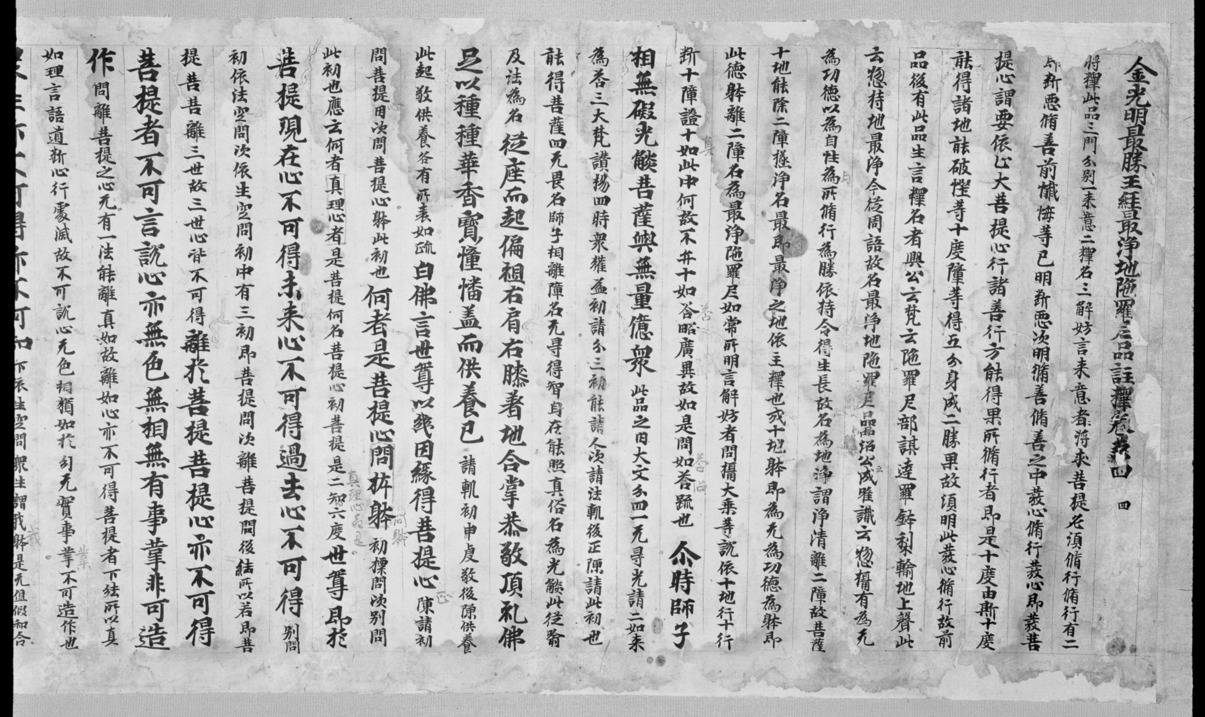 金光明最勝王經最淨地陁羅尼品註釋卷苐四 四
將釋此品三門分別一来意二釋名三解妨言来意者將求菩提必須脩行脩行有二
断悪脩善前懴悔等已明断悪次明脩善脩善之中發心脩行發心即發菩
提心謂要依此大菩提心行諸善行方能得果所脩行者即是十度由斯十度
能得諸地能破慳等十度障等得五分身成二勝果故須明此發心脩行故前
品後有此品生言釋名者興公云梵云陁羅尼部謨達羅鉢梨輸地上聲此
云惣持地最淨今從周語故名最淨地陁羅尼品紹公成唯識云惣攝有為无
為功徳以為自性為所脩行為勝依持令得生長故名為地淨謂淨清離二障故菩薩
十地能除二障㝡淨名最即最淨之地依主釋也或十地躰即為无為功徳為躰即
此徳躰離二障名為最淨陁羅尼如常所明言解妨者問攝大乗等說依十地行十行
断十障證十如此中何故不并十如答略廣異故如是問如答疏也 尒時師子
相無礙光㷿菩薩與無量億衆 此品之內大文分四一无㝵光請二如来
為荅三大梵讃揚四時衆獲益初請分三初能請人次請法軌後正陳請此初也
能得菩薩四无畏名師子相離障名无㝵得智自在能照真俗名為光㷿此從喻
及法為名 從座而起偏袒右肩右膝著地合掌恭敬頂礼佛
足以種種華香寳幢幡盖而供養已 請軌初申虔敬後陳供養
此起敬供養各有所表如疏 白佛言世尊以幾因縁得菩提心 陳請初
問菩提因次問菩提心躰此初也 何者是菩提心 問菩提心躰 初標問次別問
此初也應云何者真理心者是菩提何名菩提心初菩提是二知六度 世尊即於
菩提現在心不可得未来心不可得過去心不可得 別問
初依法空問次依生空問初中有三初即菩提問次離菩提問後結所以若即菩
提菩菩離三世故三世心皆不可得 離於菩提菩提心亦不可得
菩提者不可言說心亦無色無相無有事業非可造
作 問離菩提之心无有一法能離真如故離如心亦不可得菩提者下結所以真
如理言語道断心行處滅故不可說心无色相猶如於幻无實事業不可造作也
衆生亦不可得亦不可知 下依生空問衆生謂我躰是无值假和合